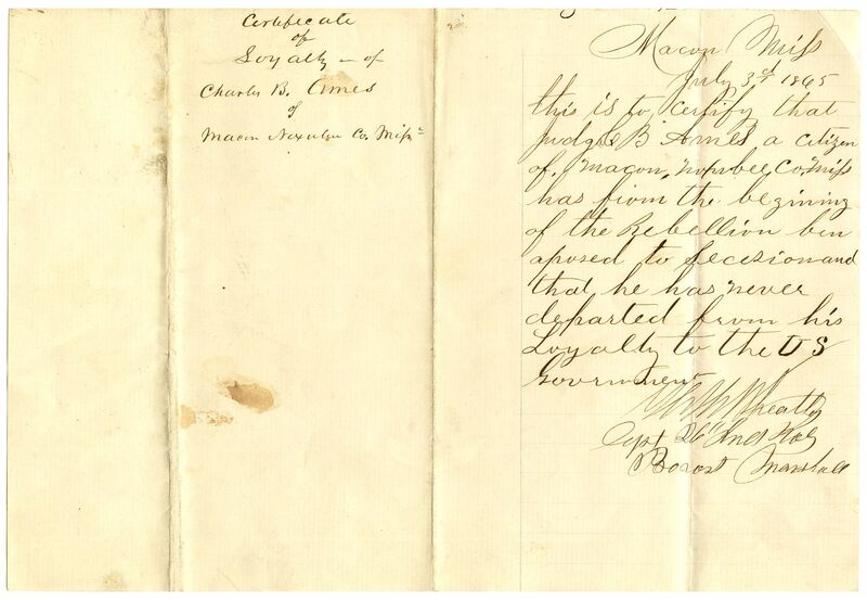 Certificate
of
Loyalty - of
Charles B. Ames
of
Macon Noxubee Co. Miss
Macon Miss
July 3d 1865
this is to certify that
Judge B Ames, a citizen
of. Macon, Noxubee Co. Miss
has from the begining
of the Rebellion ben
aposed to secesion and
that he has never
departed from his
Loyalty to the U S
Government
Wheatly
Capt 26" Ind Vols
Provost Marshall